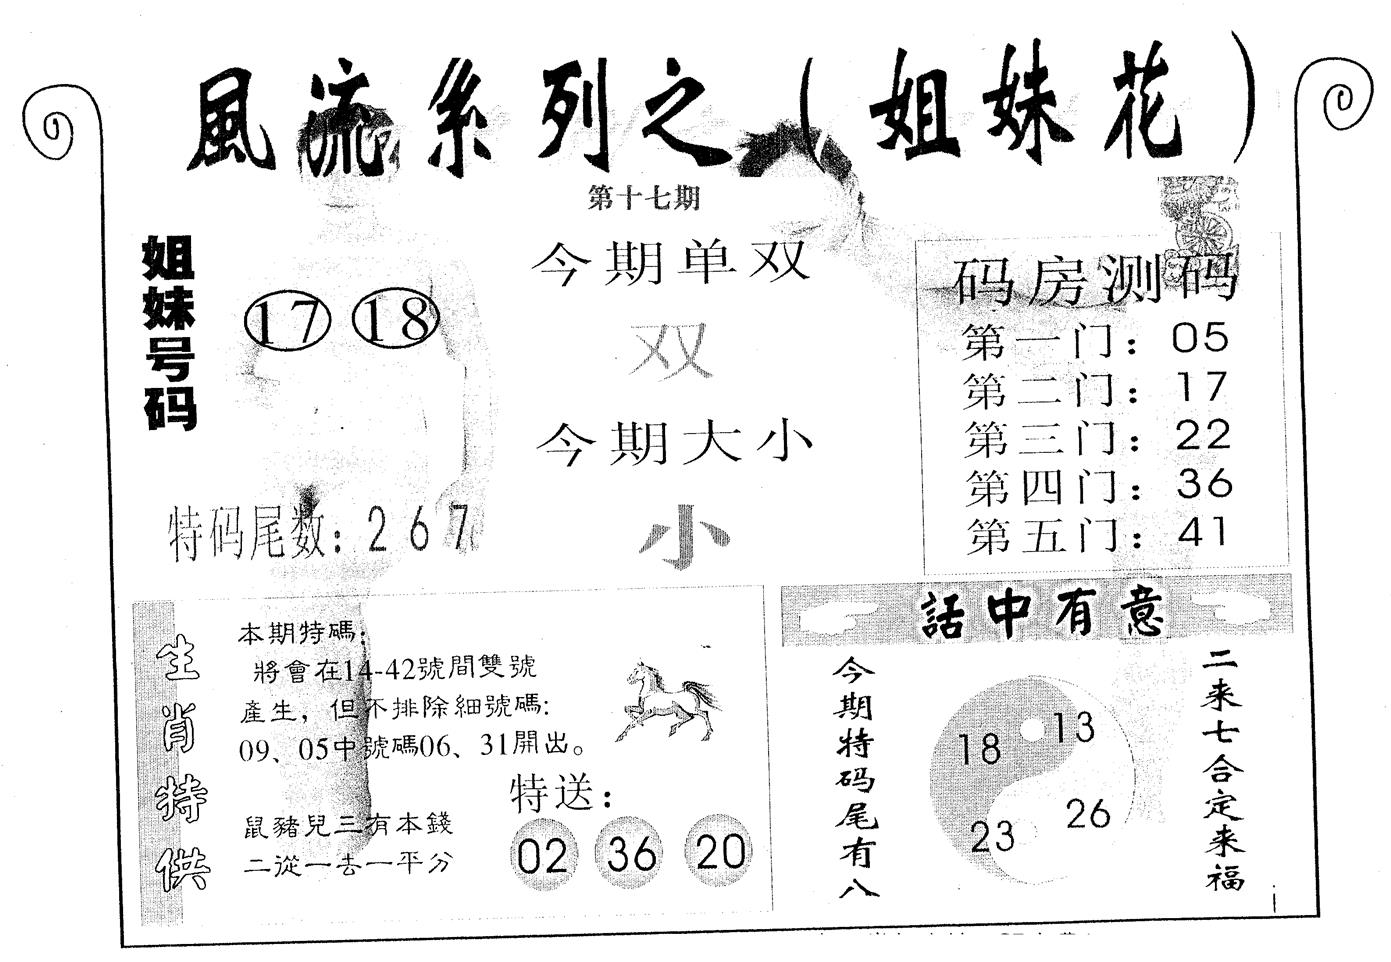 風流系列之（姐妹花）
第十七期
姐妹号码
17 18
特码尾数：2 6 7
今期单双
双
今期大小
小
码房测码
第一门：05
第二门：17
第三门：22
第四门：36
第五门：41
生肖特供
本期特碼：
將會在14-42號間雙號
產生，但不排除細號碼：
09、05中號碼06、31開出。
鼠豬兒三有本錢
二從一去一平分
特送：
02 36 20
話中有意
今期特码尾有八
18 13
23 26
二来七合定来福